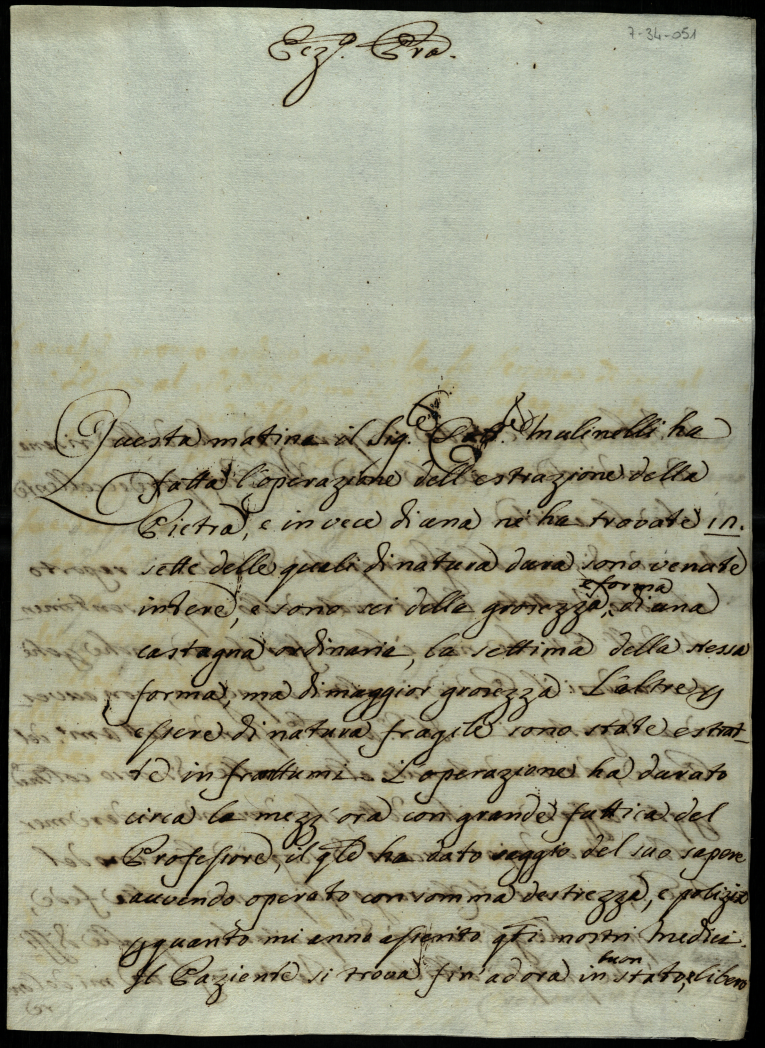 7-34-051
Ecz.a Pra.
Questa matina il Sig.re Dot.re Mulinelli ha
fatta l'operazione dell'estrazione della
Pietra, e in vece di una ne ha trovate in.
sette delle quali di natura dura sono venute
intere, e sono sei della grosezza, e forma di una
castagna ordinaria, la settima della stessa
forma, ma di maggior grosezza L'altre p
essere di natura fragile sono state estrat-
te in frattumi. L'operazione ha durato
circa la mezz'ora con grande fattica del
Professore, il qle ha dato seggio del suo sapere
auvendo operato con somma destrezza, e polizia
p quanto mi anno asserito qti nostri Medici.
Il Paziente si trova fin'adora in buon stato, libero